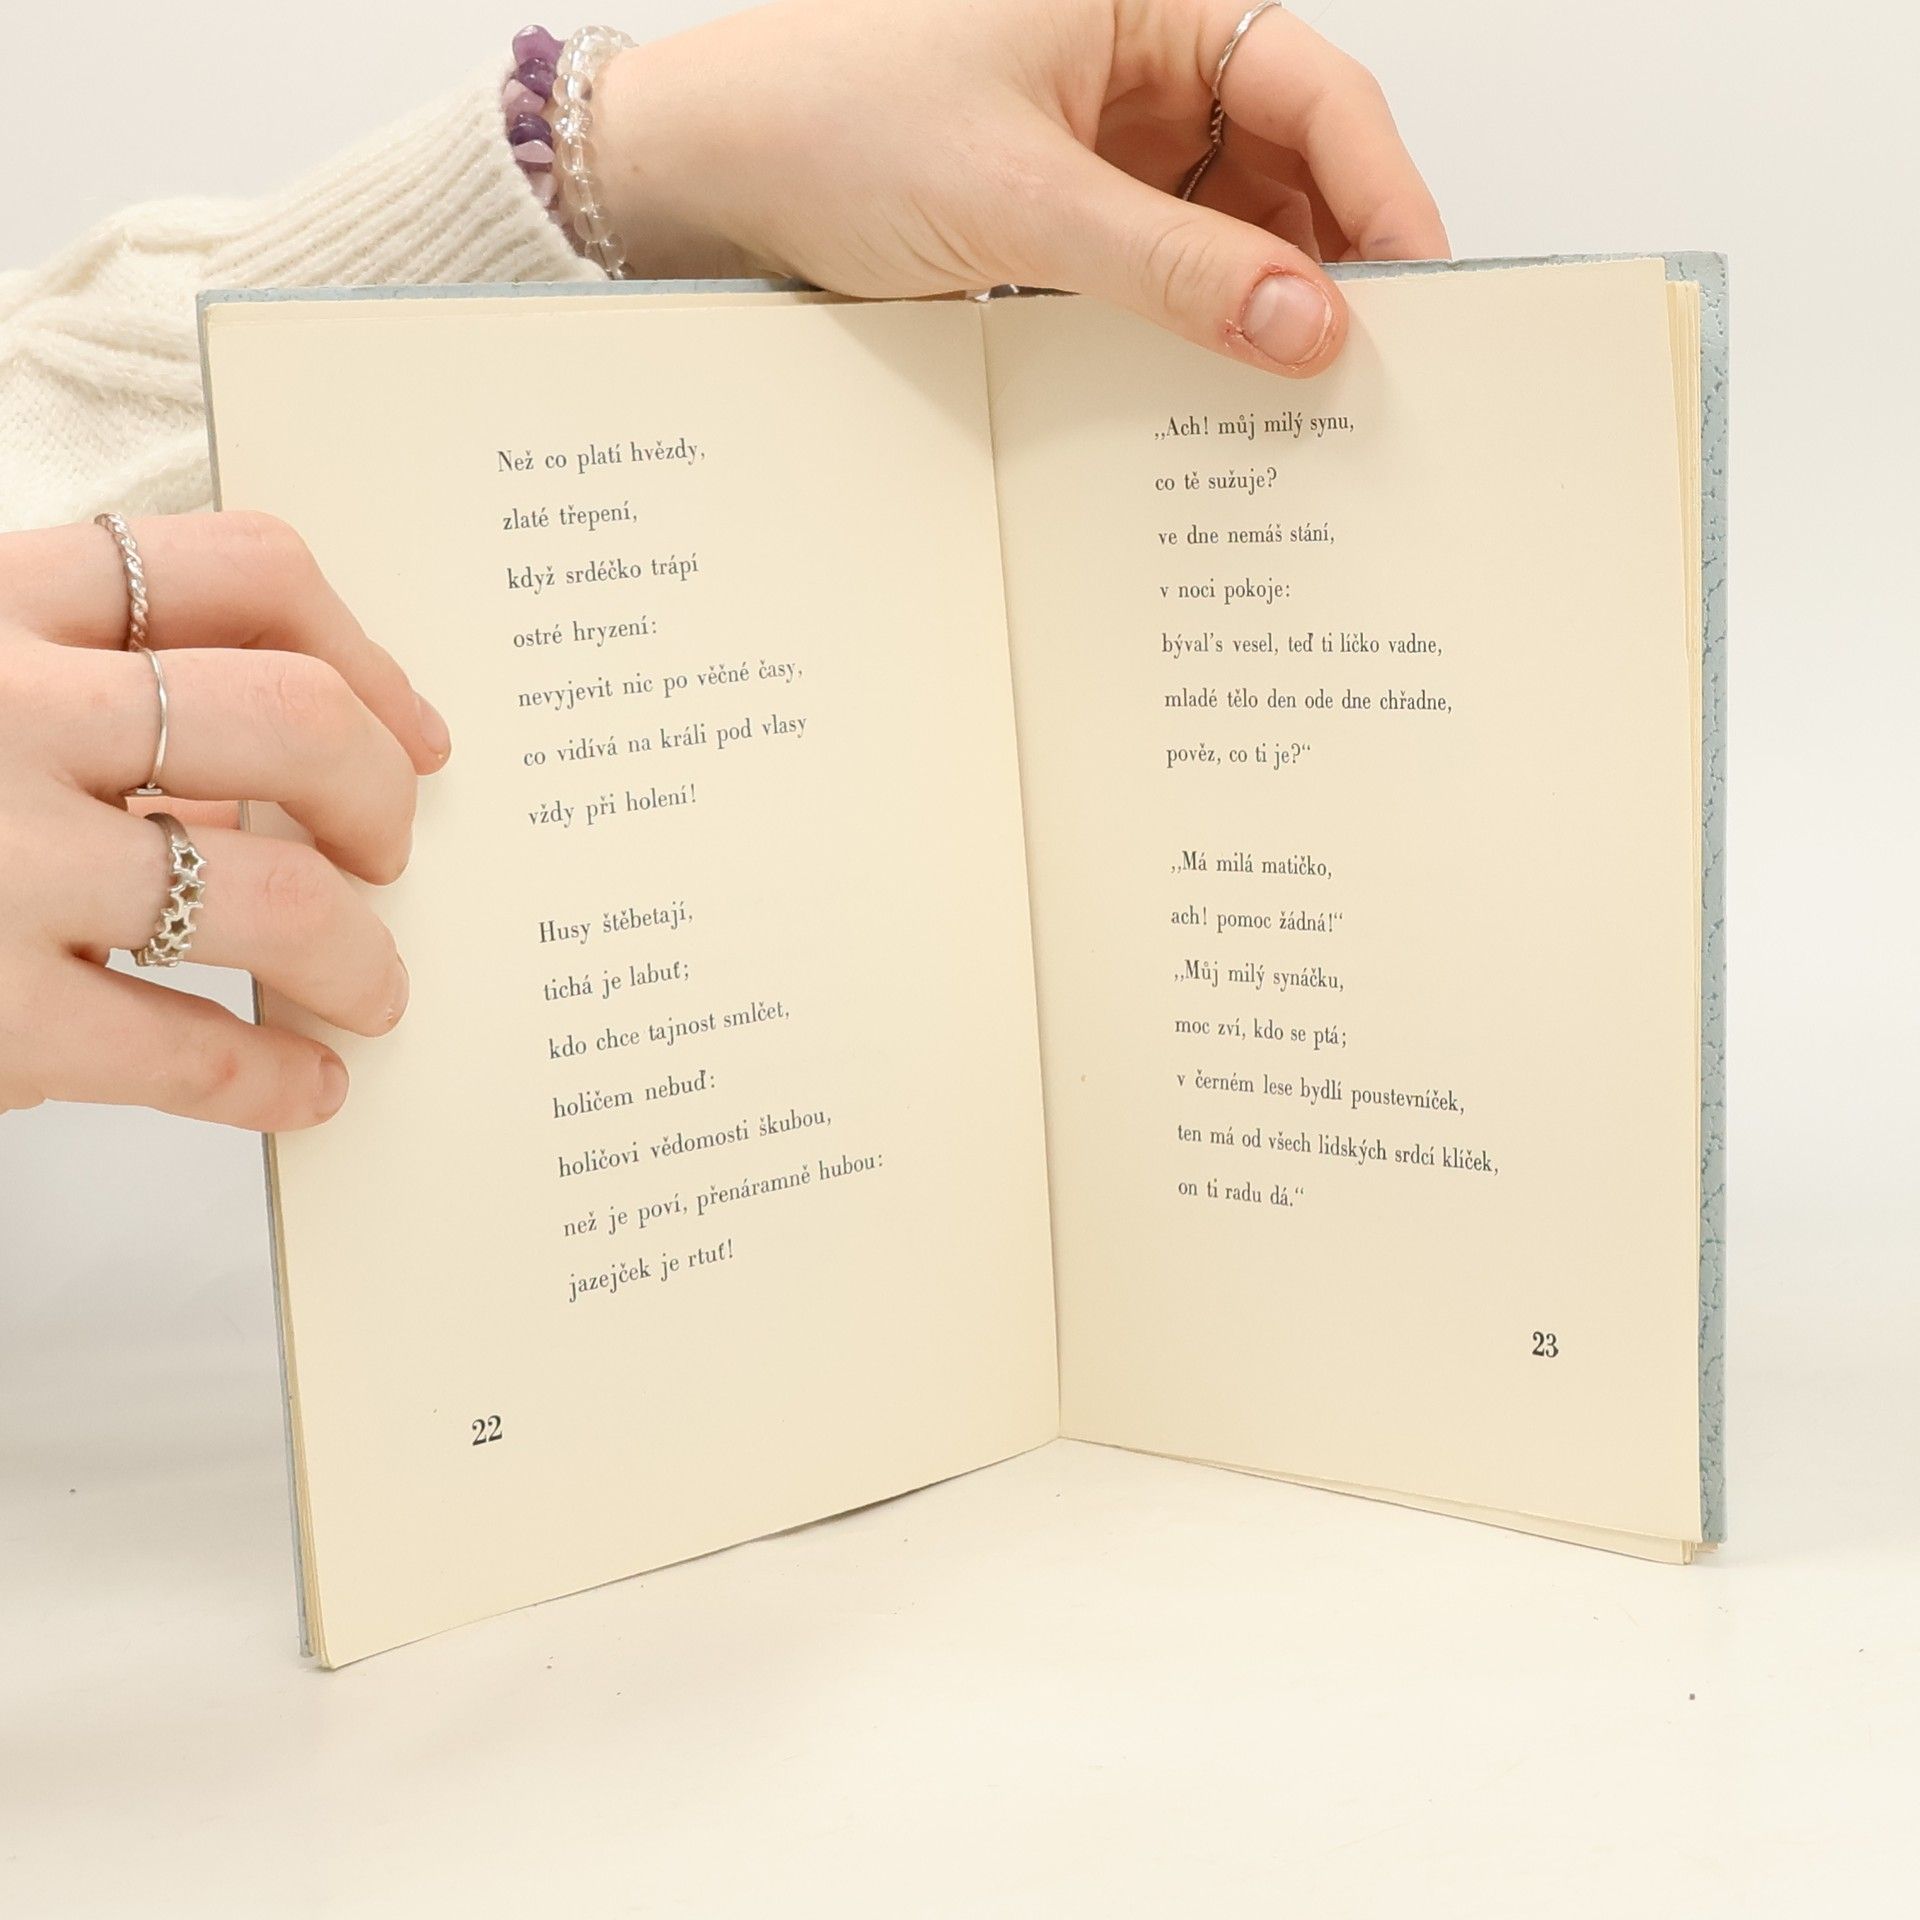 Než co platí hvězdy,
zlaté třepení,
když srdéčko trápí
ostré hryzení:
nevyjevit nic po věčné časy,
co vidívá na králi pod vlasy
vždy při holení!
Husy štěbetají,
tichá je labuť;
kdo chce tajnost smlčet,
holičem nebuď:
holičovi vědomosti škubou,
než je poví, přenáramně hubou:
jazejček je rtuť!
22
„Ach! můj milý synu,
co tě sužuje?
ve dne nemáš stání,
v noci pokoje:
býval's vesel, teď ti líčko vadne,
mladé tělo den ode dne chřadne,
pověz, co ti je?“
„Má milá matičko,
ach! pomoc žádná!“
„Můj milý synáčku,
moc zví, kdo se ptá;
v černém lese bydlí poustevníček,
ten má od všech lidských srdcí klíček,
on ti radu dá.“
23